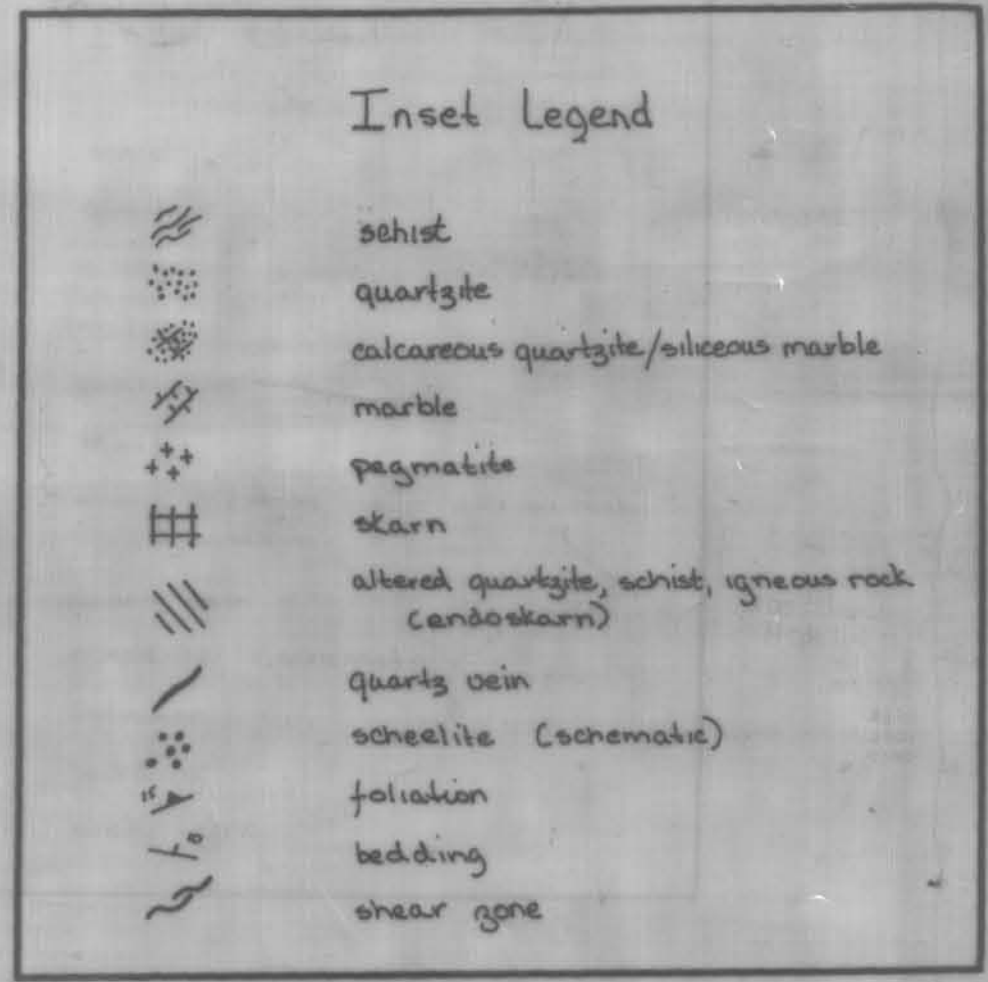 Inset Legend
schist
quartzite
calcareous quartzite/siliceous marble
marble
pegmatite
skarn
altered quartzite, schist, igneous rock
(endoskarn)
quartz vein
scheelite (schematic)
15
foliation
bedding
shear zone